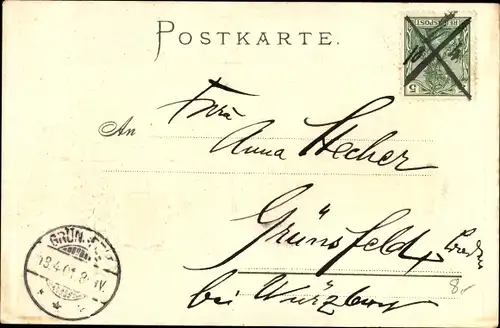 POSTKARTE.
REICHSPOST
5 5
An Frau
Anna Hecher
Grünsfeld
Baden
bei Würzburg
8.-
GRÜN
13.4.01. 8-